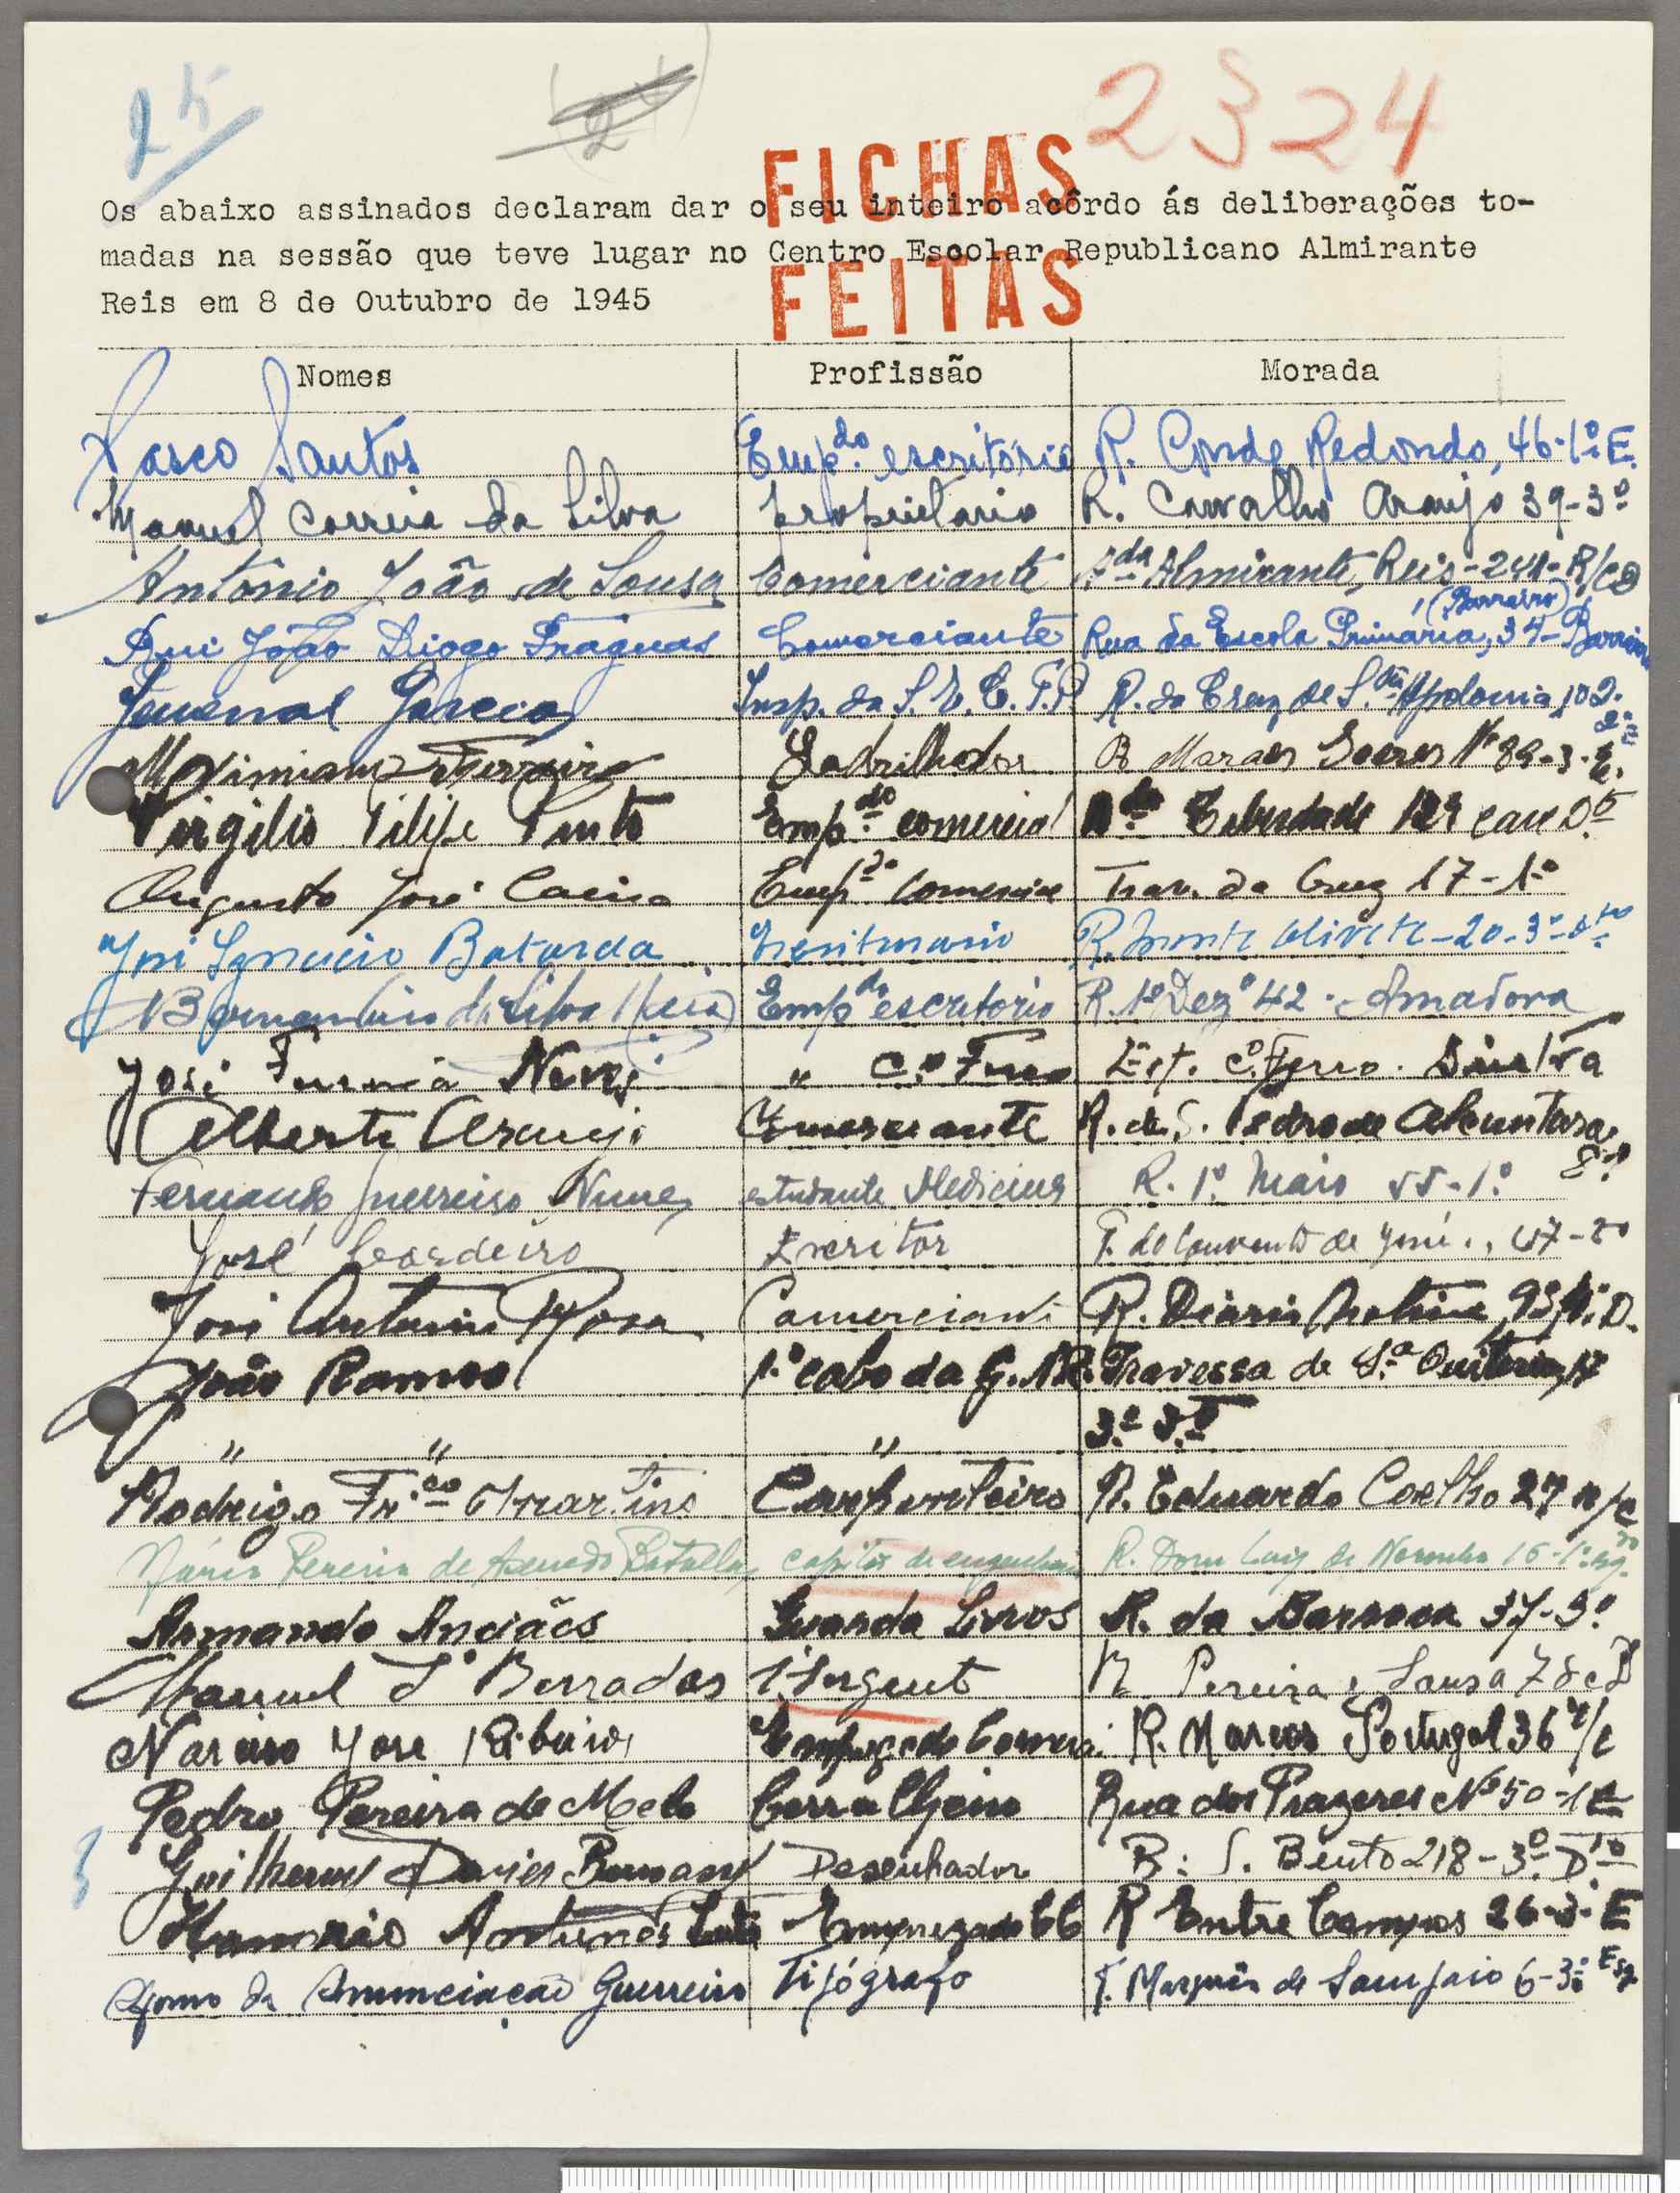 25
2
2324
FICHAS
FEITAS
Os abaixo assinados declaram dar o seu inteiro acôrdo ás deliberações to-
madas na sessão que teve lugar no Centro Escolar Republicano Almirante
Reis em 8 de Outubro de 1945
Nomes Profissão Morada
Vasco Santos Emp.do escritório R. Conde Redondo, 46-1º E.
Manuel Correia da Silva proprietario R. Carvalho Araujo 39-3º
António João de Sousa Comerciante A.da Almirante Reis - 241 - R/c D
Rui João Diogo Fraguas Comerciante Rua da Escola Primária, 34 - Barreiro
(Barreiro)
Juvenal Garcia Insp. da R. da Cruz de S.ta Apolonia 102-
Maximiano Ferreira Ladrilhador R Moraes Soares Nº 89-3-E.
Virgilio Filipe Pinto Emp.do comercial A.da Liberdade
Augusto José Emp.do Comercial Trav. da Cruz 17-1º
José Ignacio Batarda R. Monte Olivete - 20-3º-
Bernardino da Silva Emp.do escritorio R. 1º Dez.º 42 - Amadora
José Neves " C.º Ferro Est. C.º Ferro.
Alberto Araujo Comerciante R. de S. Pedro de Alcantara,
Fernando Guerreiro Nunes estudante Medicina R. 1º Maio 55-1º
José Cordeiro Escritor T. do Convento de Jesus, 47-2º
José Antonio Rosa Comerciante R. Diario Noticias, 93, D.
João Ramos 1.º cabo da G.N.R. Travessa de S.ta Quiteria, 17
" " " 3.º
Rodrigo Fr.co Martins Carpinteiro R. Eduardo Coelho 27 r/c
Mário Pereira de Azevedo Batalha capitão de engenharia R. Dom Luiz de Noronha 16-1º esq.
Armando Anciães Guarda Livros R. da Barroca 37-3º
Manuel Barradas 1º Sargent R Pereira e Sousa
Narciso José Ribeiro Empregado Comerci. R. Marcos Portugal 36 r/c
Pedro Pereira de Melo Serralheiro Rua dos Prazeres Nº 50-1º
Guilherme Desenhador R: S. Bento 218-3º Dto
Antunes Empregado R Entre Campos 26-3º E
da Anunciação Guerreiro Tipógrafo T. Marquês de Sampaio 6-3º Esq.